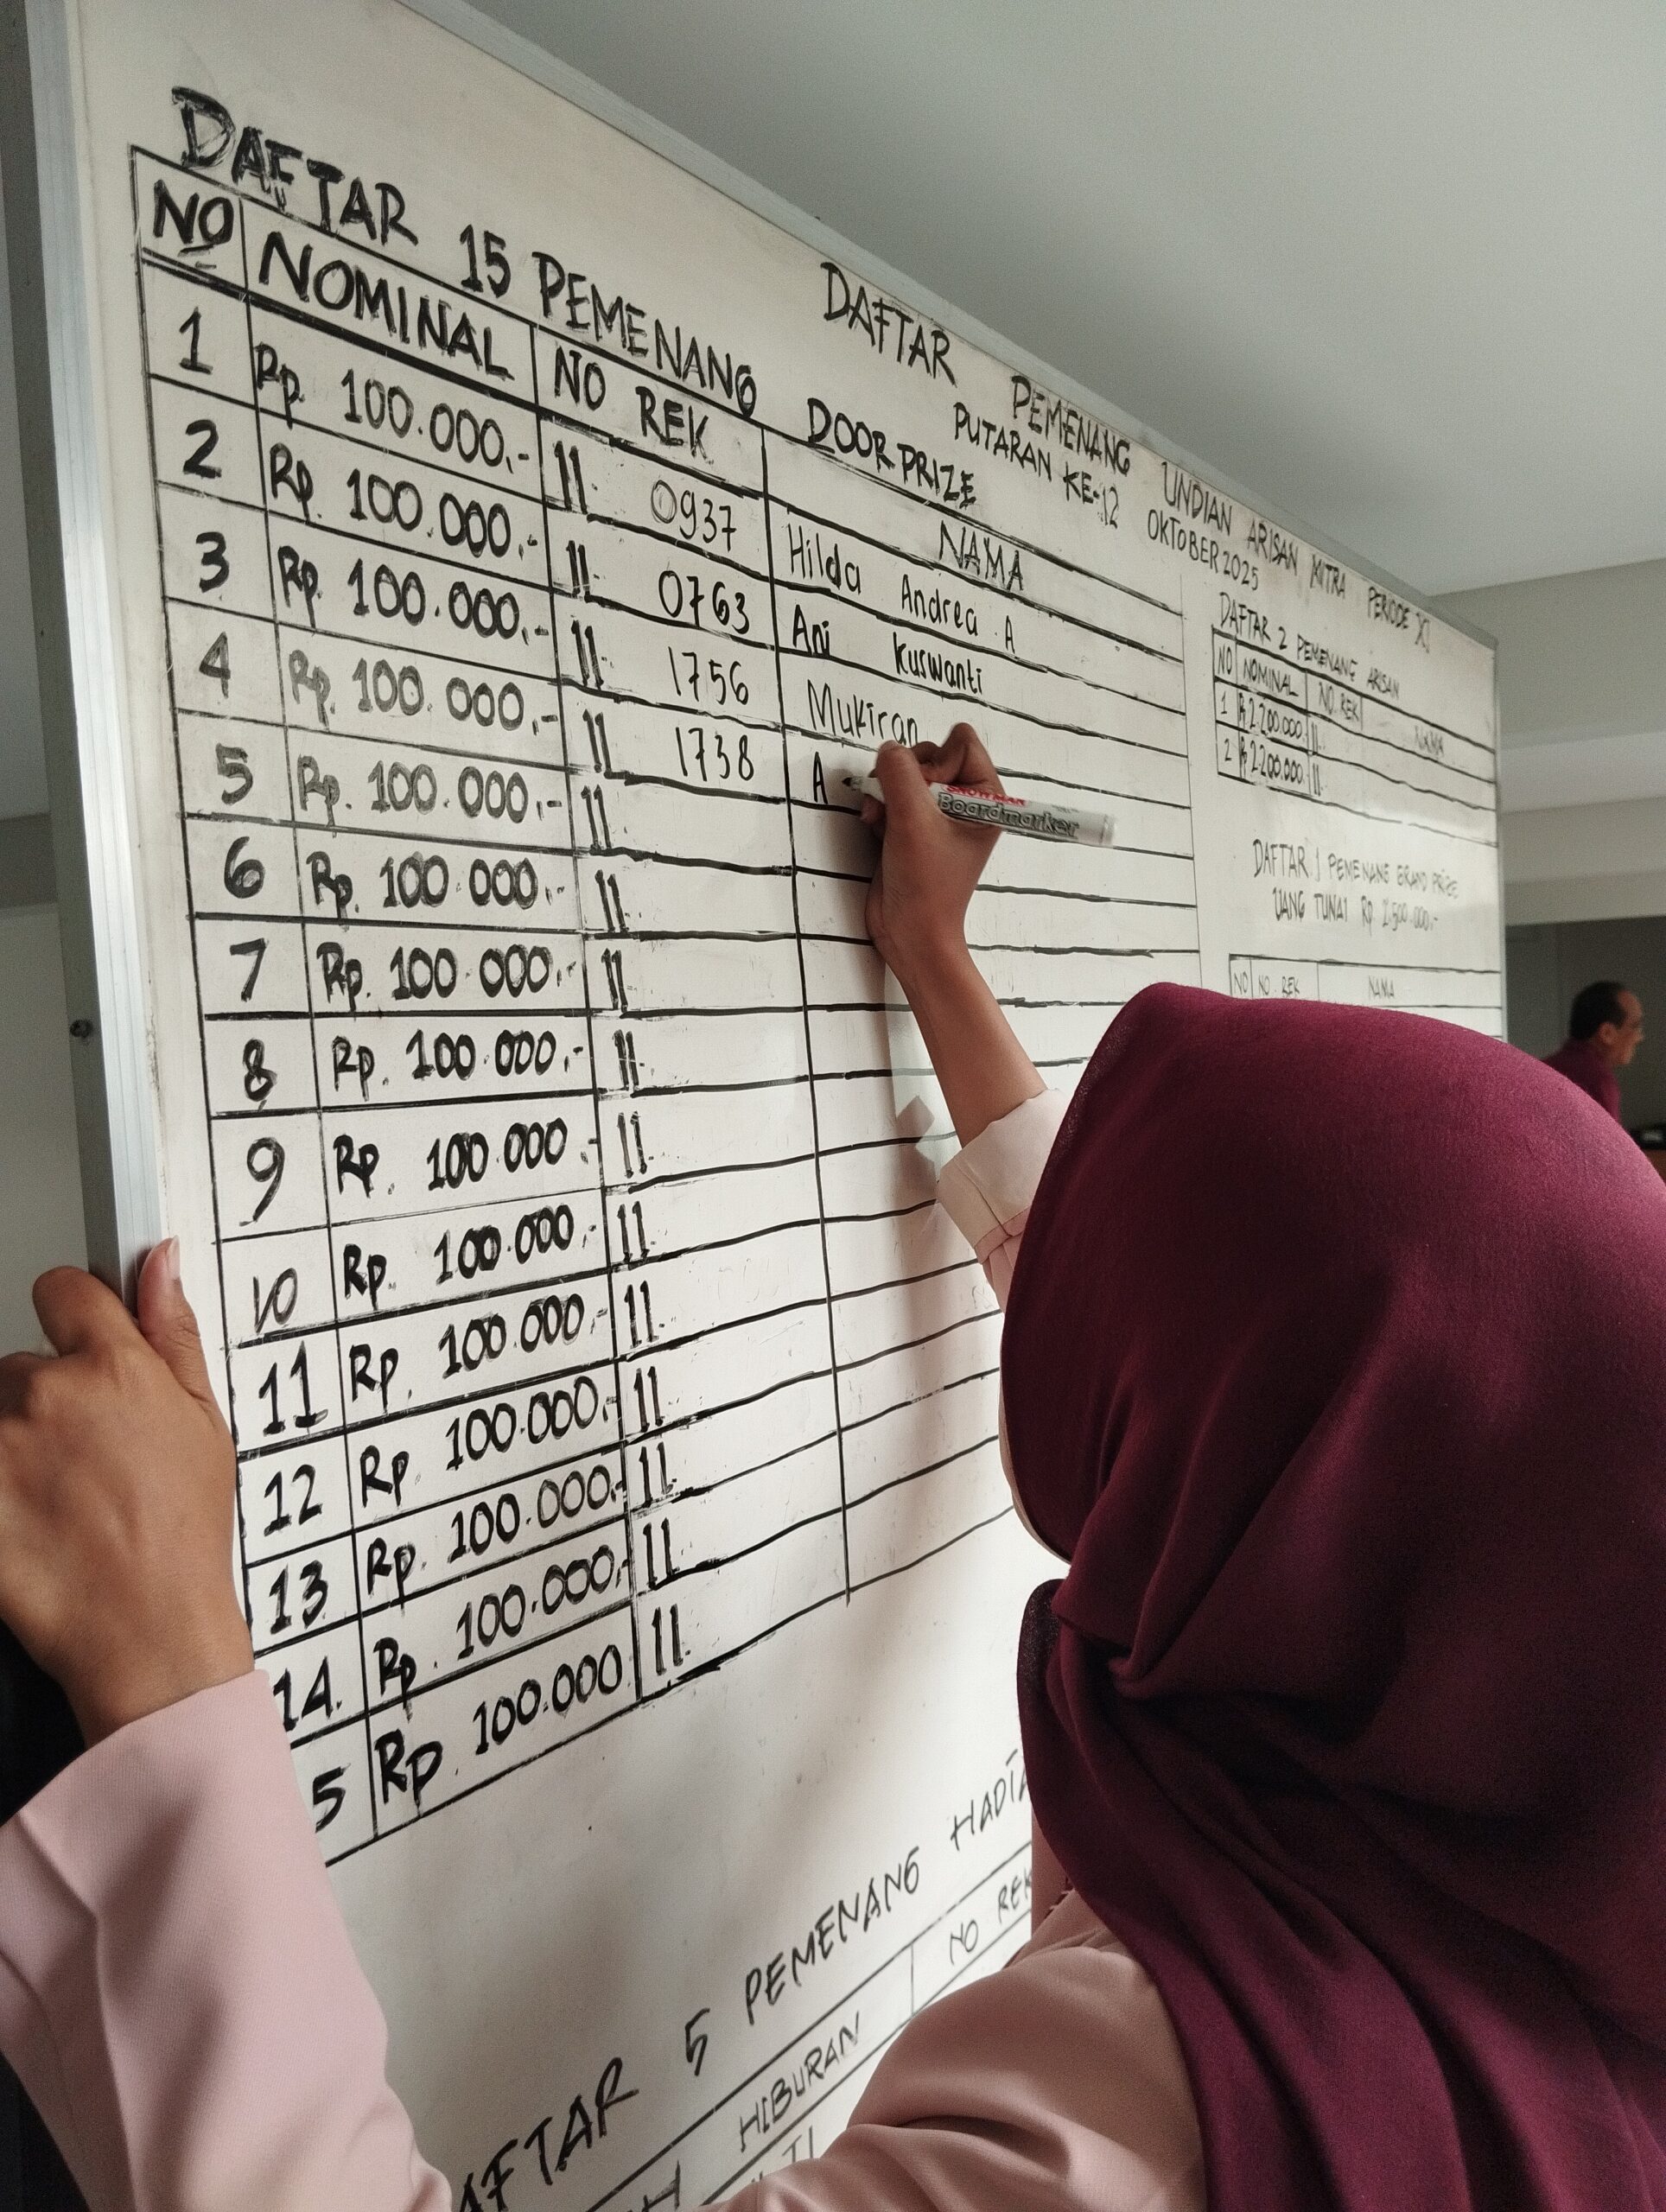 DAFTAR PEMENANG UNDIAN ARISAN MITRA PERIODE XI
PUTARAN KE-12 OKTOBER 2025
DAFTAR 15 PEMENANG DOORPRIZE
NO NOMINAL NO REK NAMA
1 Rp 100.000.- 11. 0937 Hilda Andrea A
2 Rp. 100.000.- 11. 0763 Ani Kuswanti
3 Rp. 100.000.- 11. 1756 Mukiran
4 Rp. 100.000.- 11. 1738 A
5 Rp. 100.000.- 11.
6 Rp. 100.000.- 11.
7 Rp. 100.000.- 11.
8 Rp. 100.000.- 11.
9 Rp. 100.000.- 11.
10 Rp. 100.000.- 11.
11 Rp. 100.000.- 11.
12 Rp. 100.000.- 11.
13 Rp. 100.000.- 11.
14. Rp. 100.000.- 11.
5 Rp 100.000 11.
DAFTAR 2 PEMENANG ARISAN
NO NOMINAL NO. REK NAMA
1 Rp 2.200.000. 11.
2 Rp 2.200.000. 11.
DAFTAR 1 PEMENANG GRAND PRIZE
UANG TUNAI RP.
NO NO REK NAMA
SNOWMAN
Boardmarker
AFTAR 5 PEMENANG HADIA
HIBURAN NO REK